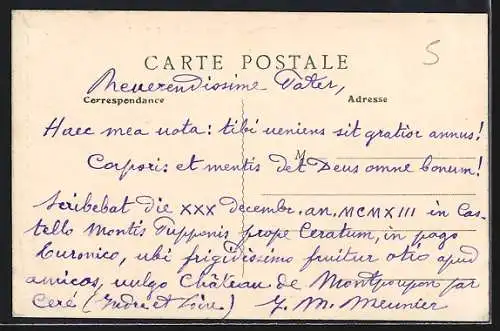 5
CARTE POSTALE
Reverendissime Pater,
Correspondance
Adresse
Haec mea vota: tibi veniens sit gratior annus!
M
Corporis et mentis det Deus omne bonum!
Scribebat die XXX decembr. an. MCMXIII in Cas-
tello Montis Pupponis prope Ceratum, in pago
Turonico, ubi frigidissimo fruitur otio apud
amicos, vulgo Château de Montpoupon par
Ceré (Indre et Loire) J. M. Meunier